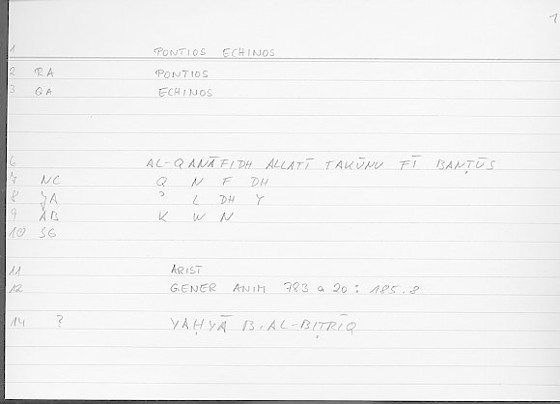 1
1 PONTIOS ECHINOS
2 RA PONTIOS
3 QA ECHINOS
6 AL-QANĀFIDH ALLATĪ TAKŪNU FĪ BANṬŪS
7 NC Q N F DH
8 JA ʾ L DH Y
9 AB K W N
10 SG
11 ARIST
12 GENER ANIM 783 a 20 : 185.8
14 ? YAḤYĀ B. AL-BIṬRĪQ